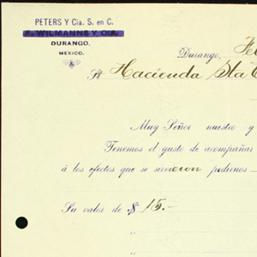 PETERS Y Cia. S. en C.
F. WILMANNS Y CIA.
DURANGO.
MEXICO.
Durango, Fe
Hacienda Sta C
Muy Señor nuestro y
Tenemos el gusto de acompañar
á los efectos que se sirvieron pedirnos
Su valor de $ 15.-